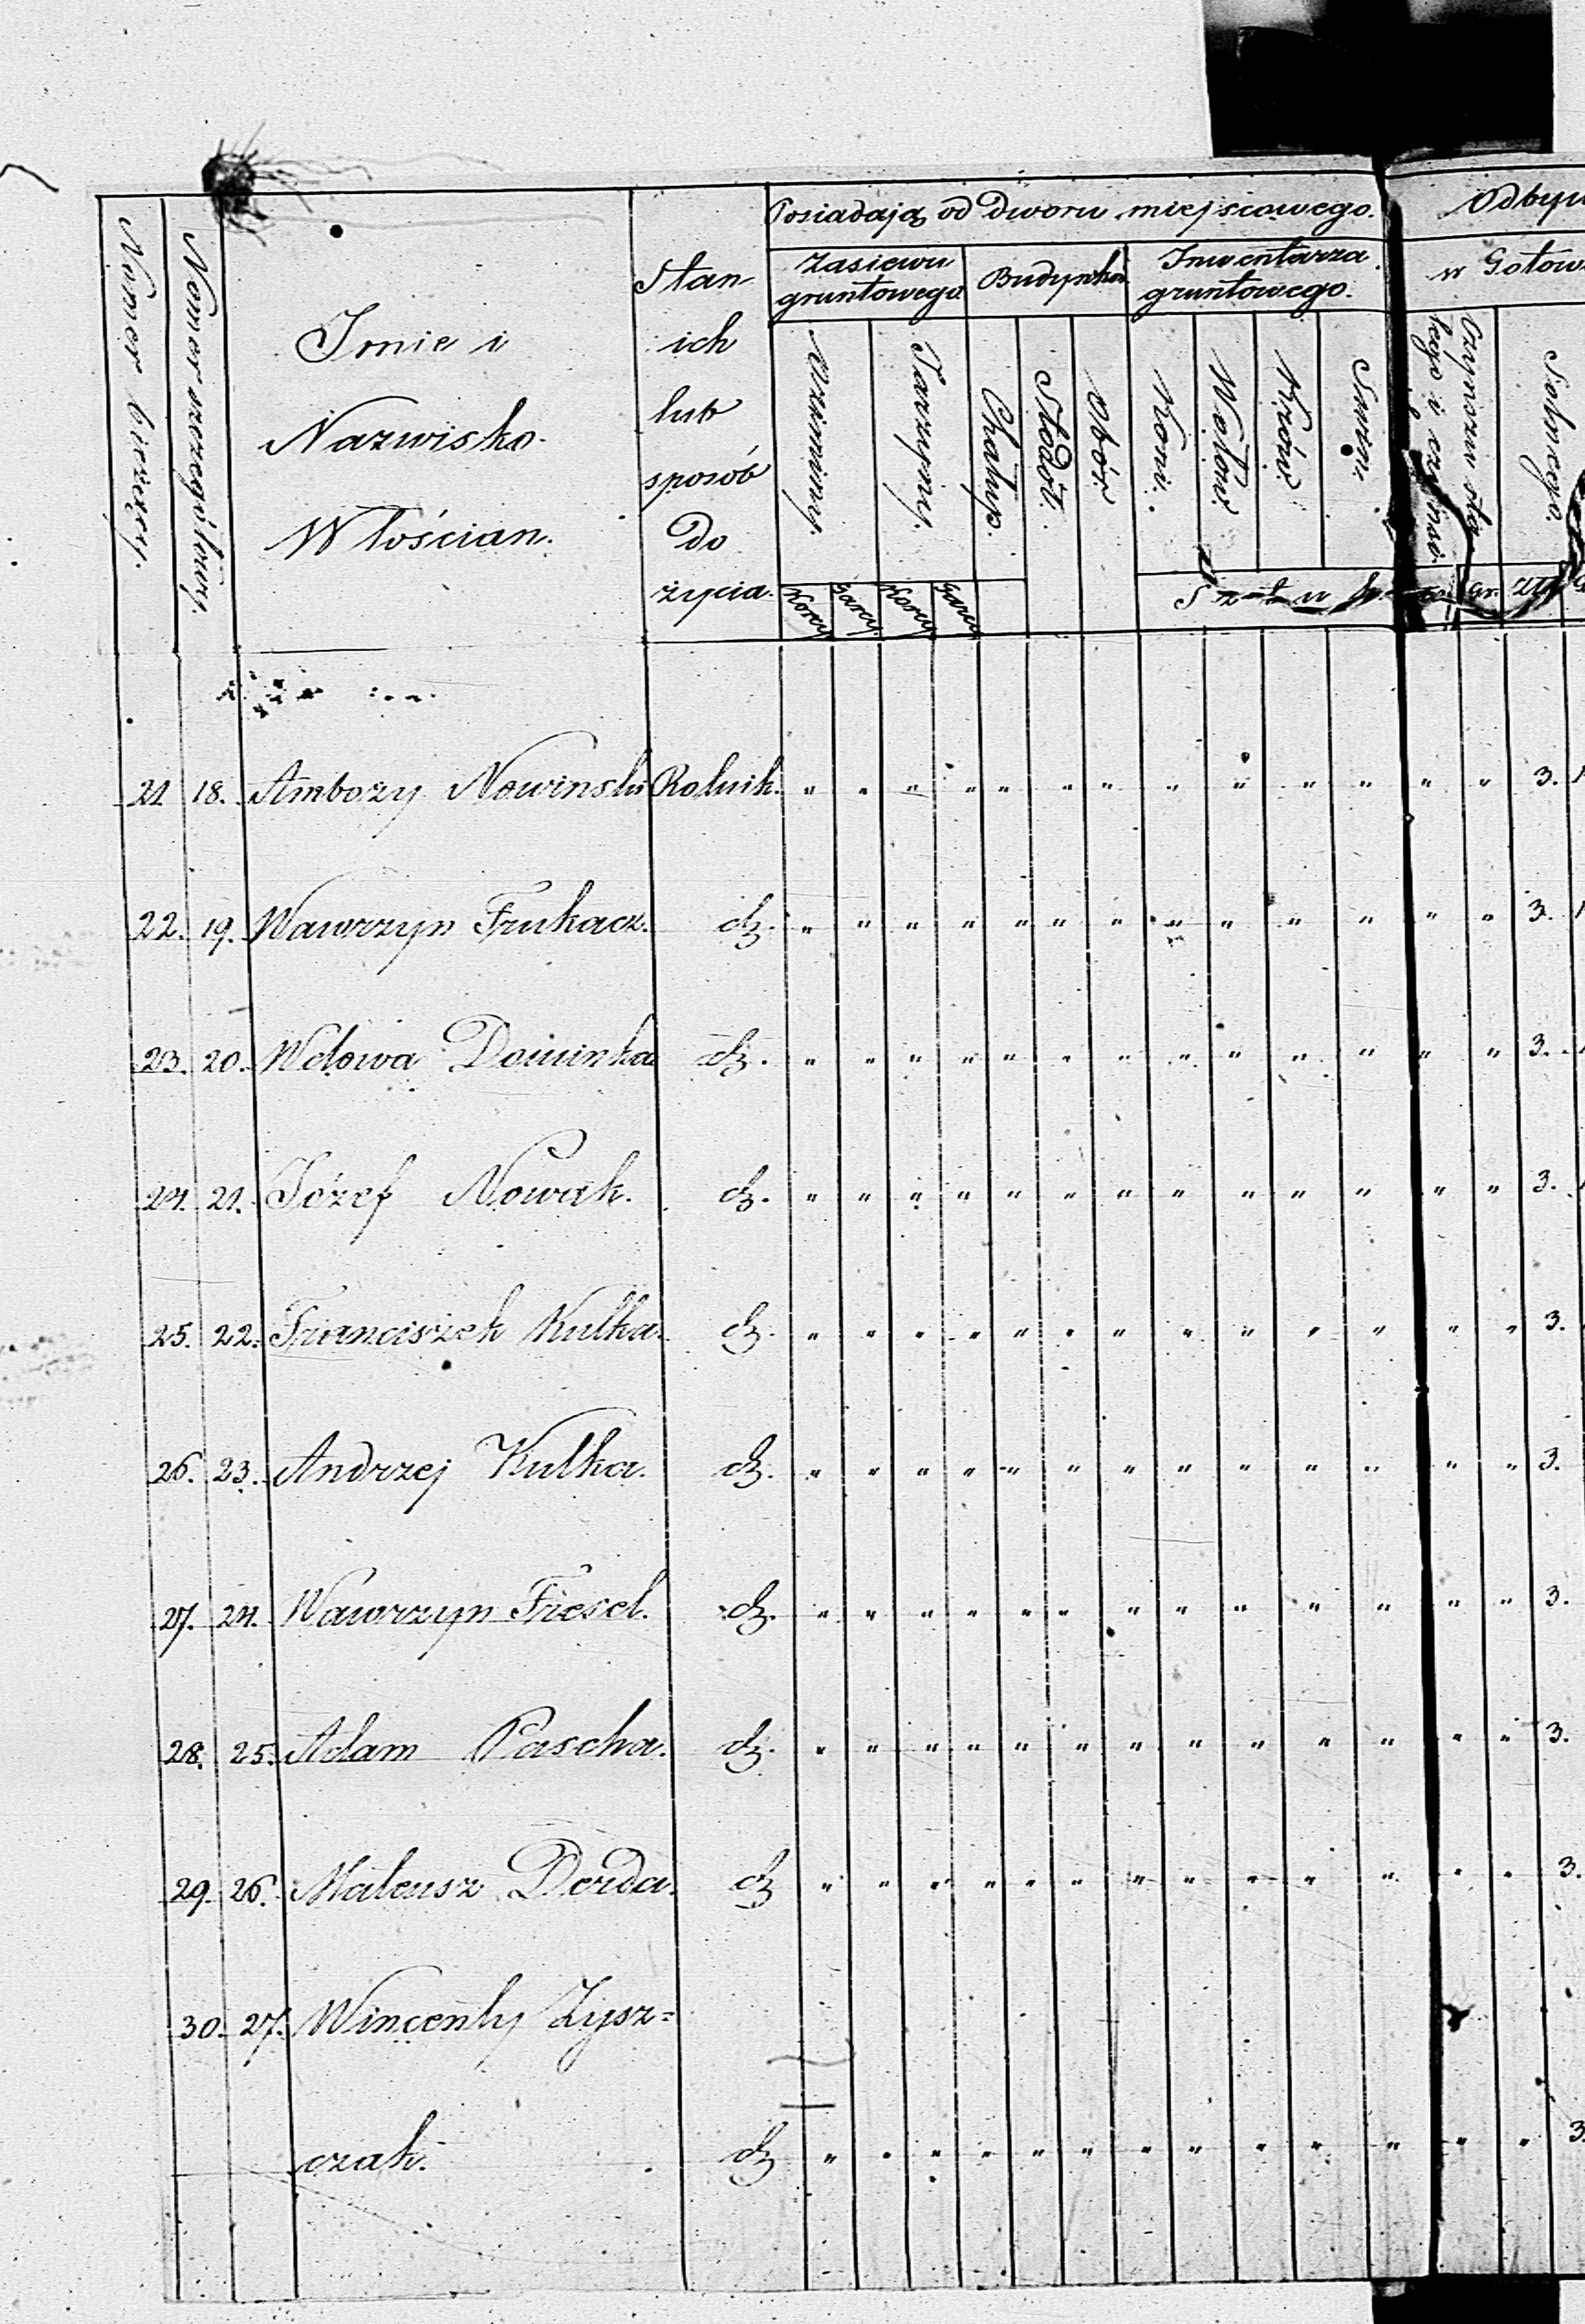 Posiadają od Dworu miejscowego.
Numer bieżący.
Numer szczegółowy.
Imie i
Nazwisko
Włościan.
Stan
ich
lub
sposób
do
życia.
Zasiewu
gruntowego
Budynków
Inwentarza
gruntowego.
w Gotow
Ozimny.
Jarzyny.
Chałup.
Stodół.
Obór
Koni.
Wołow.
Krów
Swin.
Korcy Garcy Korcy Garcy
Sztuk
Gr. Zł
21 18. Ambozy Nowinski Rolnik. " " " " " " " " " " " " " 3.
22. 19. Wawrzyn Frukacz. dz. " " " " " " " " " " " " " 3.
23. 20. Wdowa Dominka dz. " " " " " " " " " " " " " 3.
24. 21. Józef Nowak. dz. " " " " " " " " " " " " " 3.
25. 22. Franciszek Kulka. dz. " " " " " " " " " " " " " 3.
26. 23. Andrzej Kulka. dz. " " " " " " " " " " " " " 3.
27. 24. Wawrzyn Friesel. dz. " " " " " " " " " " " " " 3.
28. 25. Adam Pascha. dz. " " " " " " " " " " " " " 3.
29. 26. Mateusz Derda. dz " " " " " " " " " " " " " 3.
30. 27. Wincenty Zysz=
czak. dz " " " " " " " " " " " " " 3.